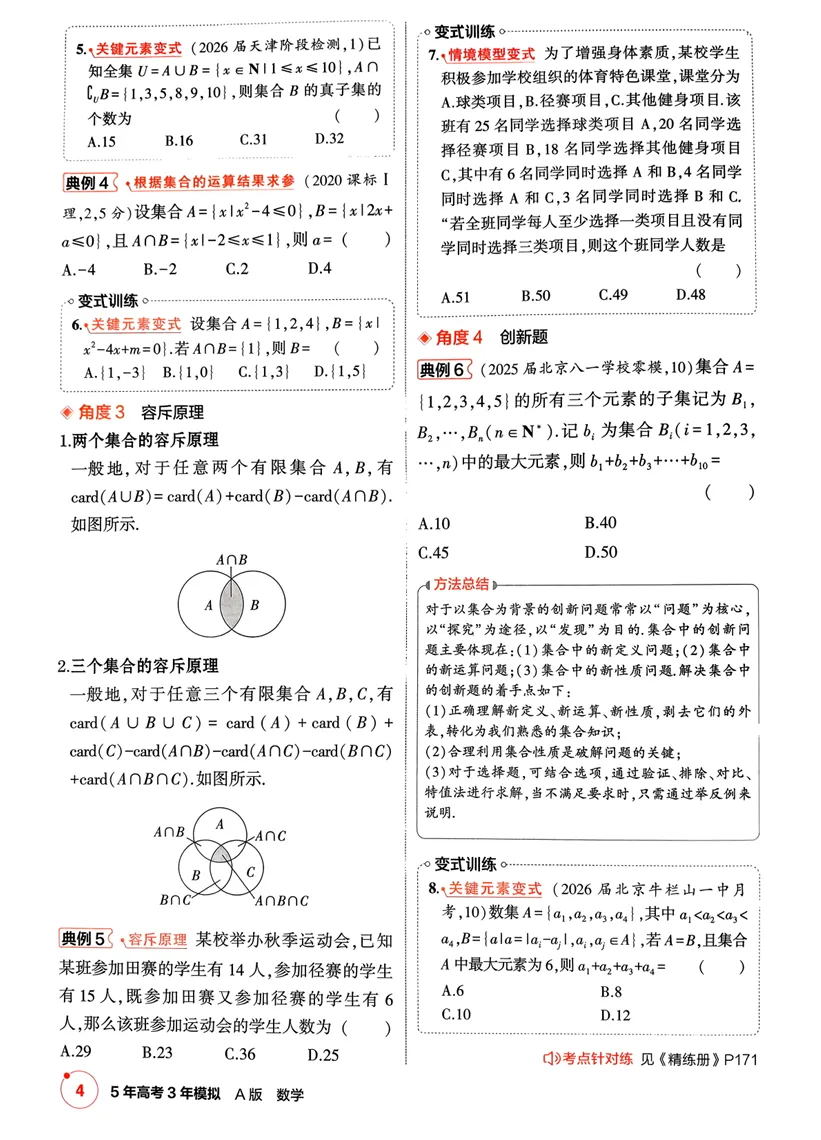 5.关键元素变式 (2026 届天津阶段检测,1)已
知全集 U=A∪B={x∈N|1≤x≤10},A∩
∁UB={1,3,5,8,9,10},则集合 B 的真子集的
个数为 ( )
A.15 B.16 C.31 D.32
典例4 根据集合的运算结果求参 (2020 课标Ⅰ
理,2,5 分)设集合 A={x|x²-4≤0},B={x|2x+
a≤0},且 A∩B={x|-2≤x≤1},则 a= ( )
A.-4 B.-2 C.2 D.4
变式训练
6.关键元素变式 设集合 A={1,2,4},B={x|
x²-4x+m=0}.若 A∩B={1},则 B= ( )
A.{1,-3} B.{1,0} C.{1,3} D.{1,5}
角度3 容斥原理
1.两个集合的容斥原理
一般地,对于任意两个有限集合 A,B,有
card(A∪B)=card(A)+card(B)-card(A∩B).
如图所示.
A∩B
A B
2.三个集合的容斥原理
一般地,对于任意三个有限集合 A,B,C,有
card(A∪B∪C)=card(A)+card(B)+
card(C)-card(A∩B)-card(A∩C)-card(B∩C)
+card(A∩B∩C).如图所示.
A∩B A A∩C
B C
B∩C A∩B∩C
典例5 容斥原理 某校举办秋季运动会,已知
某班参加田赛的学生有 14 人,参加径赛的学生
有 15 人,既参加田赛又参加径赛的学生有 6
人,那么该班参加运动会的学生人数为 ( )
A.29 B.23 C.36 D.25
4 5年高考3年模拟 A版 数学
变式训练
7.情境模型变式 为了增强身体素质,某校学生
积极参加学校组织的体育特色课堂,课堂分为
A.球类项目,B.径赛项目,C.其他健身项目.该
班有 25 名同学选择球类项目 A,20 名同学选
择径赛项目 B,18 名同学选择其他健身项目
C,其中有 6 名同学同时选择 A 和 B,4 名同学
同时选择 A 和 C,3 名同学同时选择 B 和 C.
“若全班同学每人至少选择一类项目且没有同
学同时选择三类项目,则这个班同学人数是
( )
A.51 B.50 C.49 D.48
角度4 创新题
典例6 (2025 届北京八一学校零模,10)集合 A=
{1,2,3,4,5}的所有三个元素的子集记为 B₁,
B₂,…,Bₙ(n∈N*).记 bᵢ 为集合 Bᵢ(i=1,2,3,
…,n)中的最大元素,则 b₁+b₂+b₃+…+b₁₀=
( )
A.10 B.40
C.45 D.50
方法总结
对于以集合为背景的创新问题常常以“问题”为核心,
以“探究”为途径,以“发现”为目的.集合中的创新问
题主要体现在:(1)集合中的新定义问题;(2)集合中
的新运算问题;(3)集合中的新性质问题.解决集合中
的创新题的着手点如下:
(1)正确理解新定义、新运算、新性质,剥去它们的外
表,转化为我们熟悉的集合知识;
(2)合理利用集合性质是破解问题的关键;
(3)对于选择题,可结合选项,通过验证、排除、对比、
特值法进行求解,当不满足要求时,只需通过举反例来
说明.
变式训练
8.关键元素变式 (2026 届北京牛栏山一中月
考,10)数集 A={a₁,a₂,a₃,a₄},其中 a₁<a₂<a₃<
a₄,B={a|a=|aᵢ-aⱼ|,aᵢ,aⱼ∈A},若 A=B,且集合
A 中最大元素为 6,则 a₁+a₂+a₃+a₄= ( )
A.6 B.8
C.10 D.12
考点针对练 见《精练册》P171